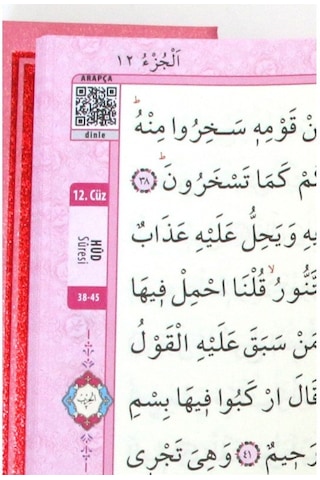 اَلْجُزْءُ ١٢
ARAPÇA
dinle
12. Cüz
HÛD
Sûresi
38-45
قَوْمِه۪ سَخِرُوا مِنْهُۜ
كَمَا تَسْخَرُونَۜ ﴿٣٨﴾
وَيَحِلُّ عَلَيْهِ عَذَابٌ
قُلْنَا احْمِلْ ف۪يهَا
مَنْ سَبَقَ عَلَيْهِ الْقَوْلُ
قَالَ ارْكَبُوا ف۪يهَا بِسْمِ
﴿٤١﴾ وَهِيَ تَجْر۪ي